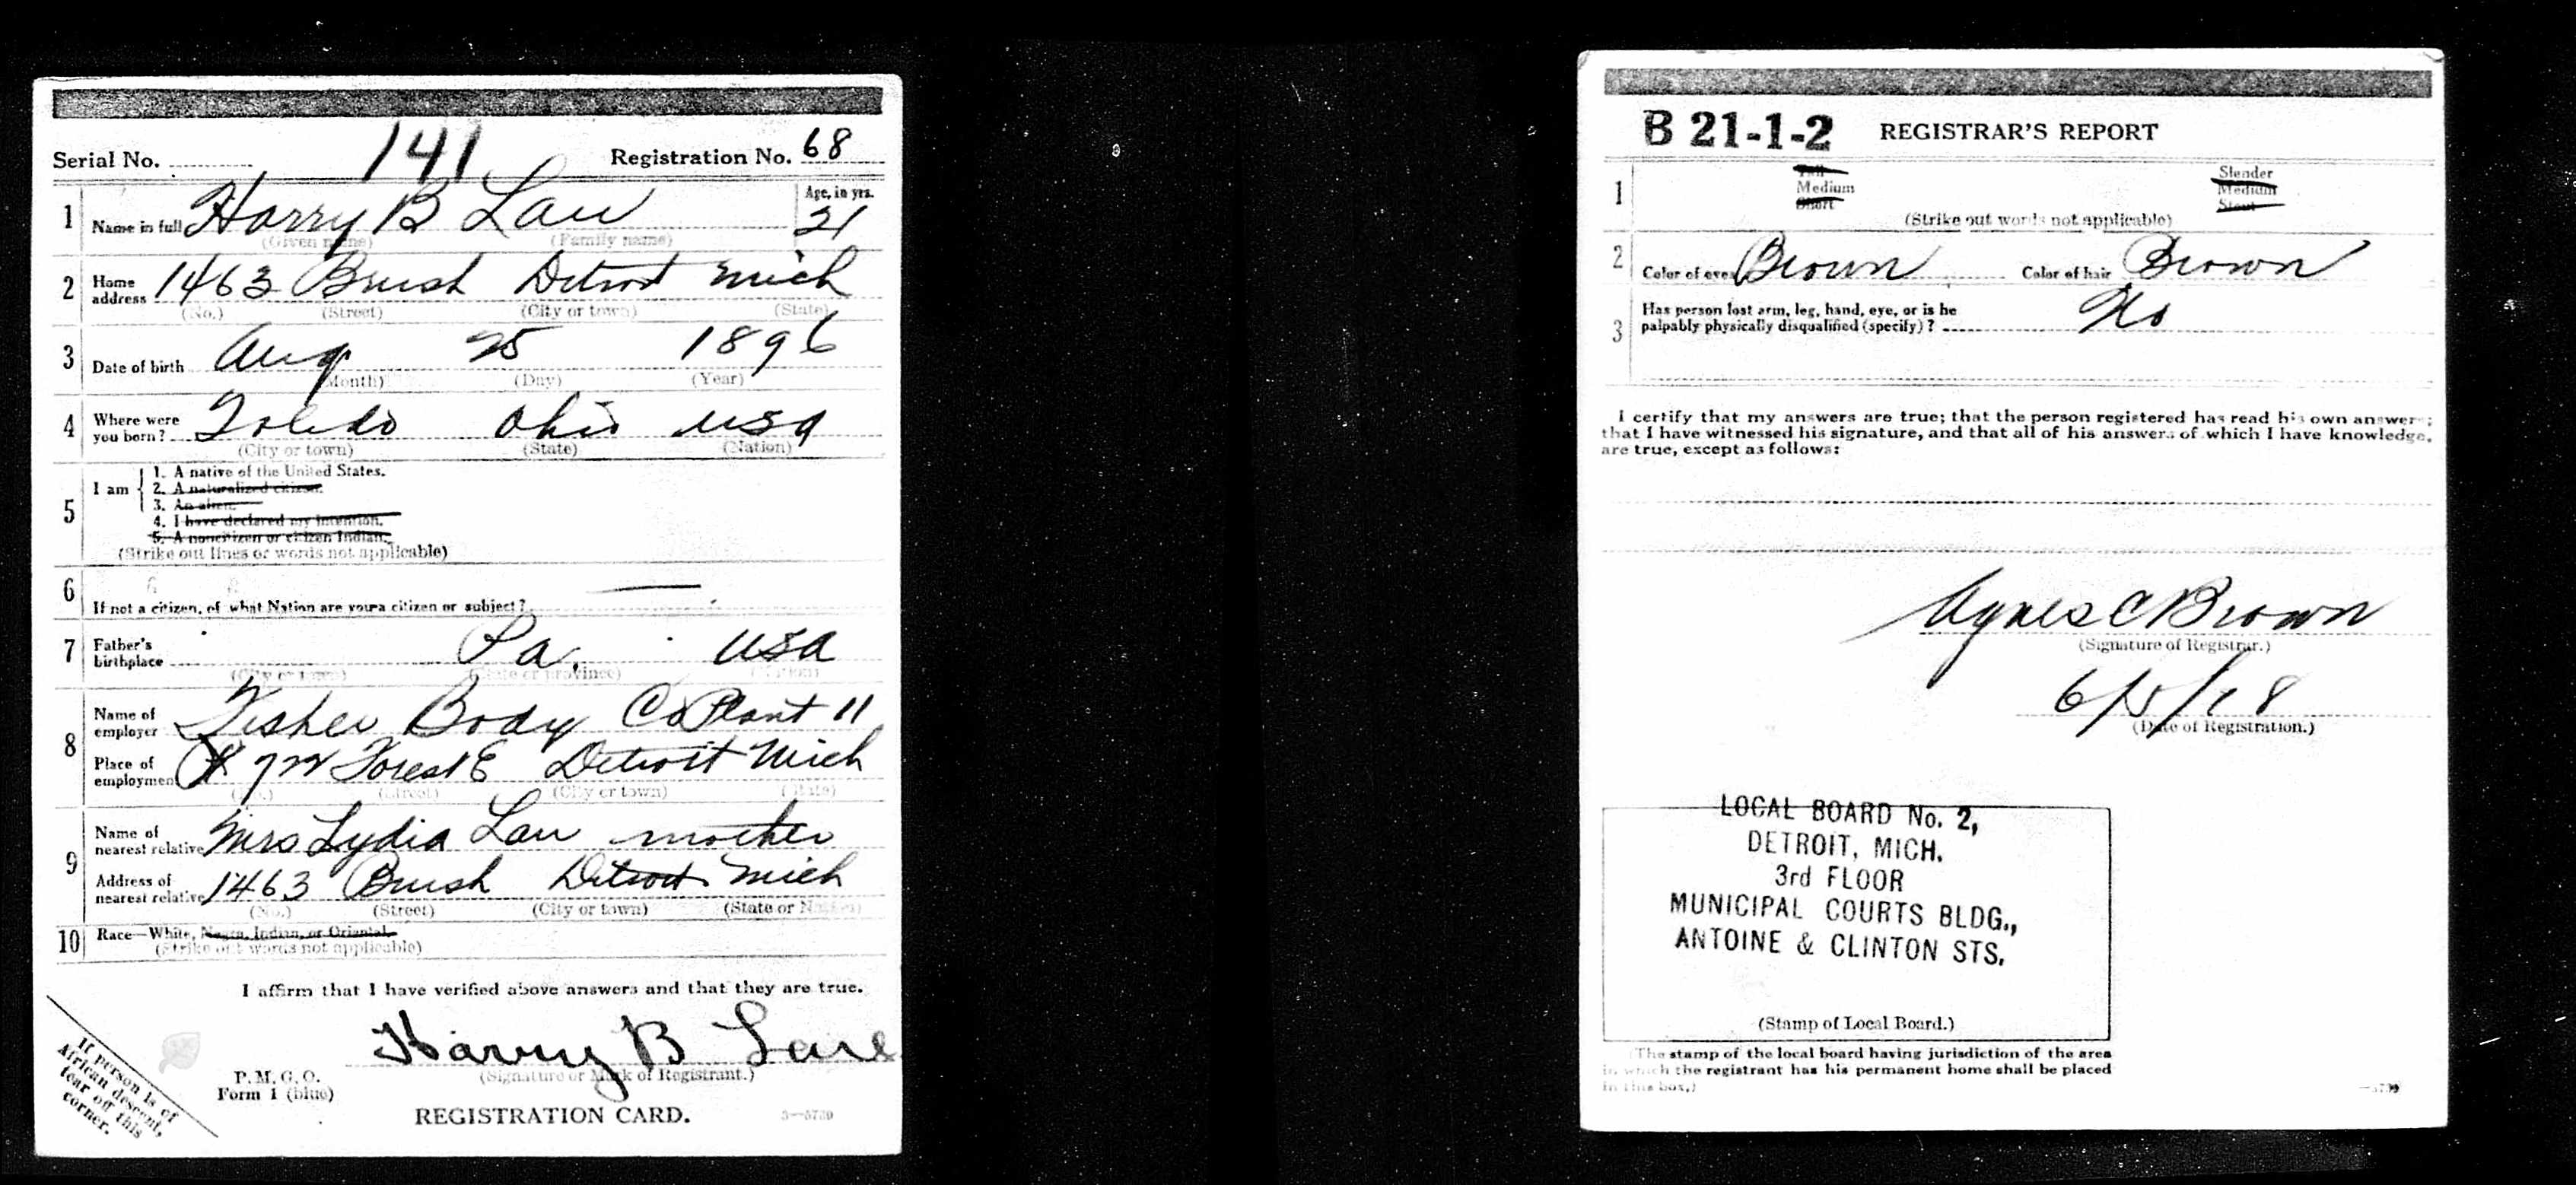 Serial No. 141 Registration No. 68
1 Name in full Harry B Law Age, in yrs. 21
(Given name) (Family name)
2 Home address 1463 Brush Detroit Mich
(No.) (Street) (City or town) (State)
3 Date of birth Aug 25 1896
(Month) (Day) (Year)
4 Where were you born? Toledo Ohio USA
(City or town) (State) (Nation)
5 I am
1. A native of the United States.
2. A naturalized citizen.
3. An alien.
4. I have declared my intention.
5. A noncitizen or citizen Indian.
(Strike out lines or words not applicable)
6 If not a citizen, of what Nation are you a citizen or subject? —
7 Father's birthplace Pa. USA
(City or town) (State or province) (Nation)
8 Name of employer Fisher Body Co Plant 11
Place of employment Forest E Detroit Mich
(No.) (Street) (City or town) (State)
9 Name of nearest relative Mrs Lydia Law mother
Address of nearest relative 1463 Brush Detroit Mich
(No.) (Street) (City or town) (State or Nation)
10 Race—White, Negro, Indian, or Oriental.
(Strike out words not applicable)
I affirm that I have verified above answers and that they are true.
Harry B
(Signature or Mark of Registrant.)
P. M. G. O.
Form 1 (blue)
REGISTRATION CARD.
If person is of
African descent,
tear off this
corner.
B 21-1-2 REGISTRAR'S REPORT
1 Tall Slender
Medium Medium
Short Stout
(Strike out words not applicable)
2 Color of eyes Brown Color of hair Brown
3 Has person lost arm, leg, hand, eye, or is he
palpably physically disqualified (specify)? No
I certify that my answers are true; that the person registered has read his own answers;
that I have witnessed his signature, and that all of his answers of which I have knowledge,
are true, except as follows:
Agnes C Brown
(Signature of Registrar.)
6/5/18
(Date of Registration.)
LOCAL BOARD No. 2,
DETROIT, MICH.
3rd FLOOR
MUNICIPAL COURTS BLDG.,
ANTOINE & CLINTON STS.
(Stamp of Local Board.)
(The stamp of the local board having jurisdiction of the area
in which the registrant has his permanent home shall be placed
in this box.)